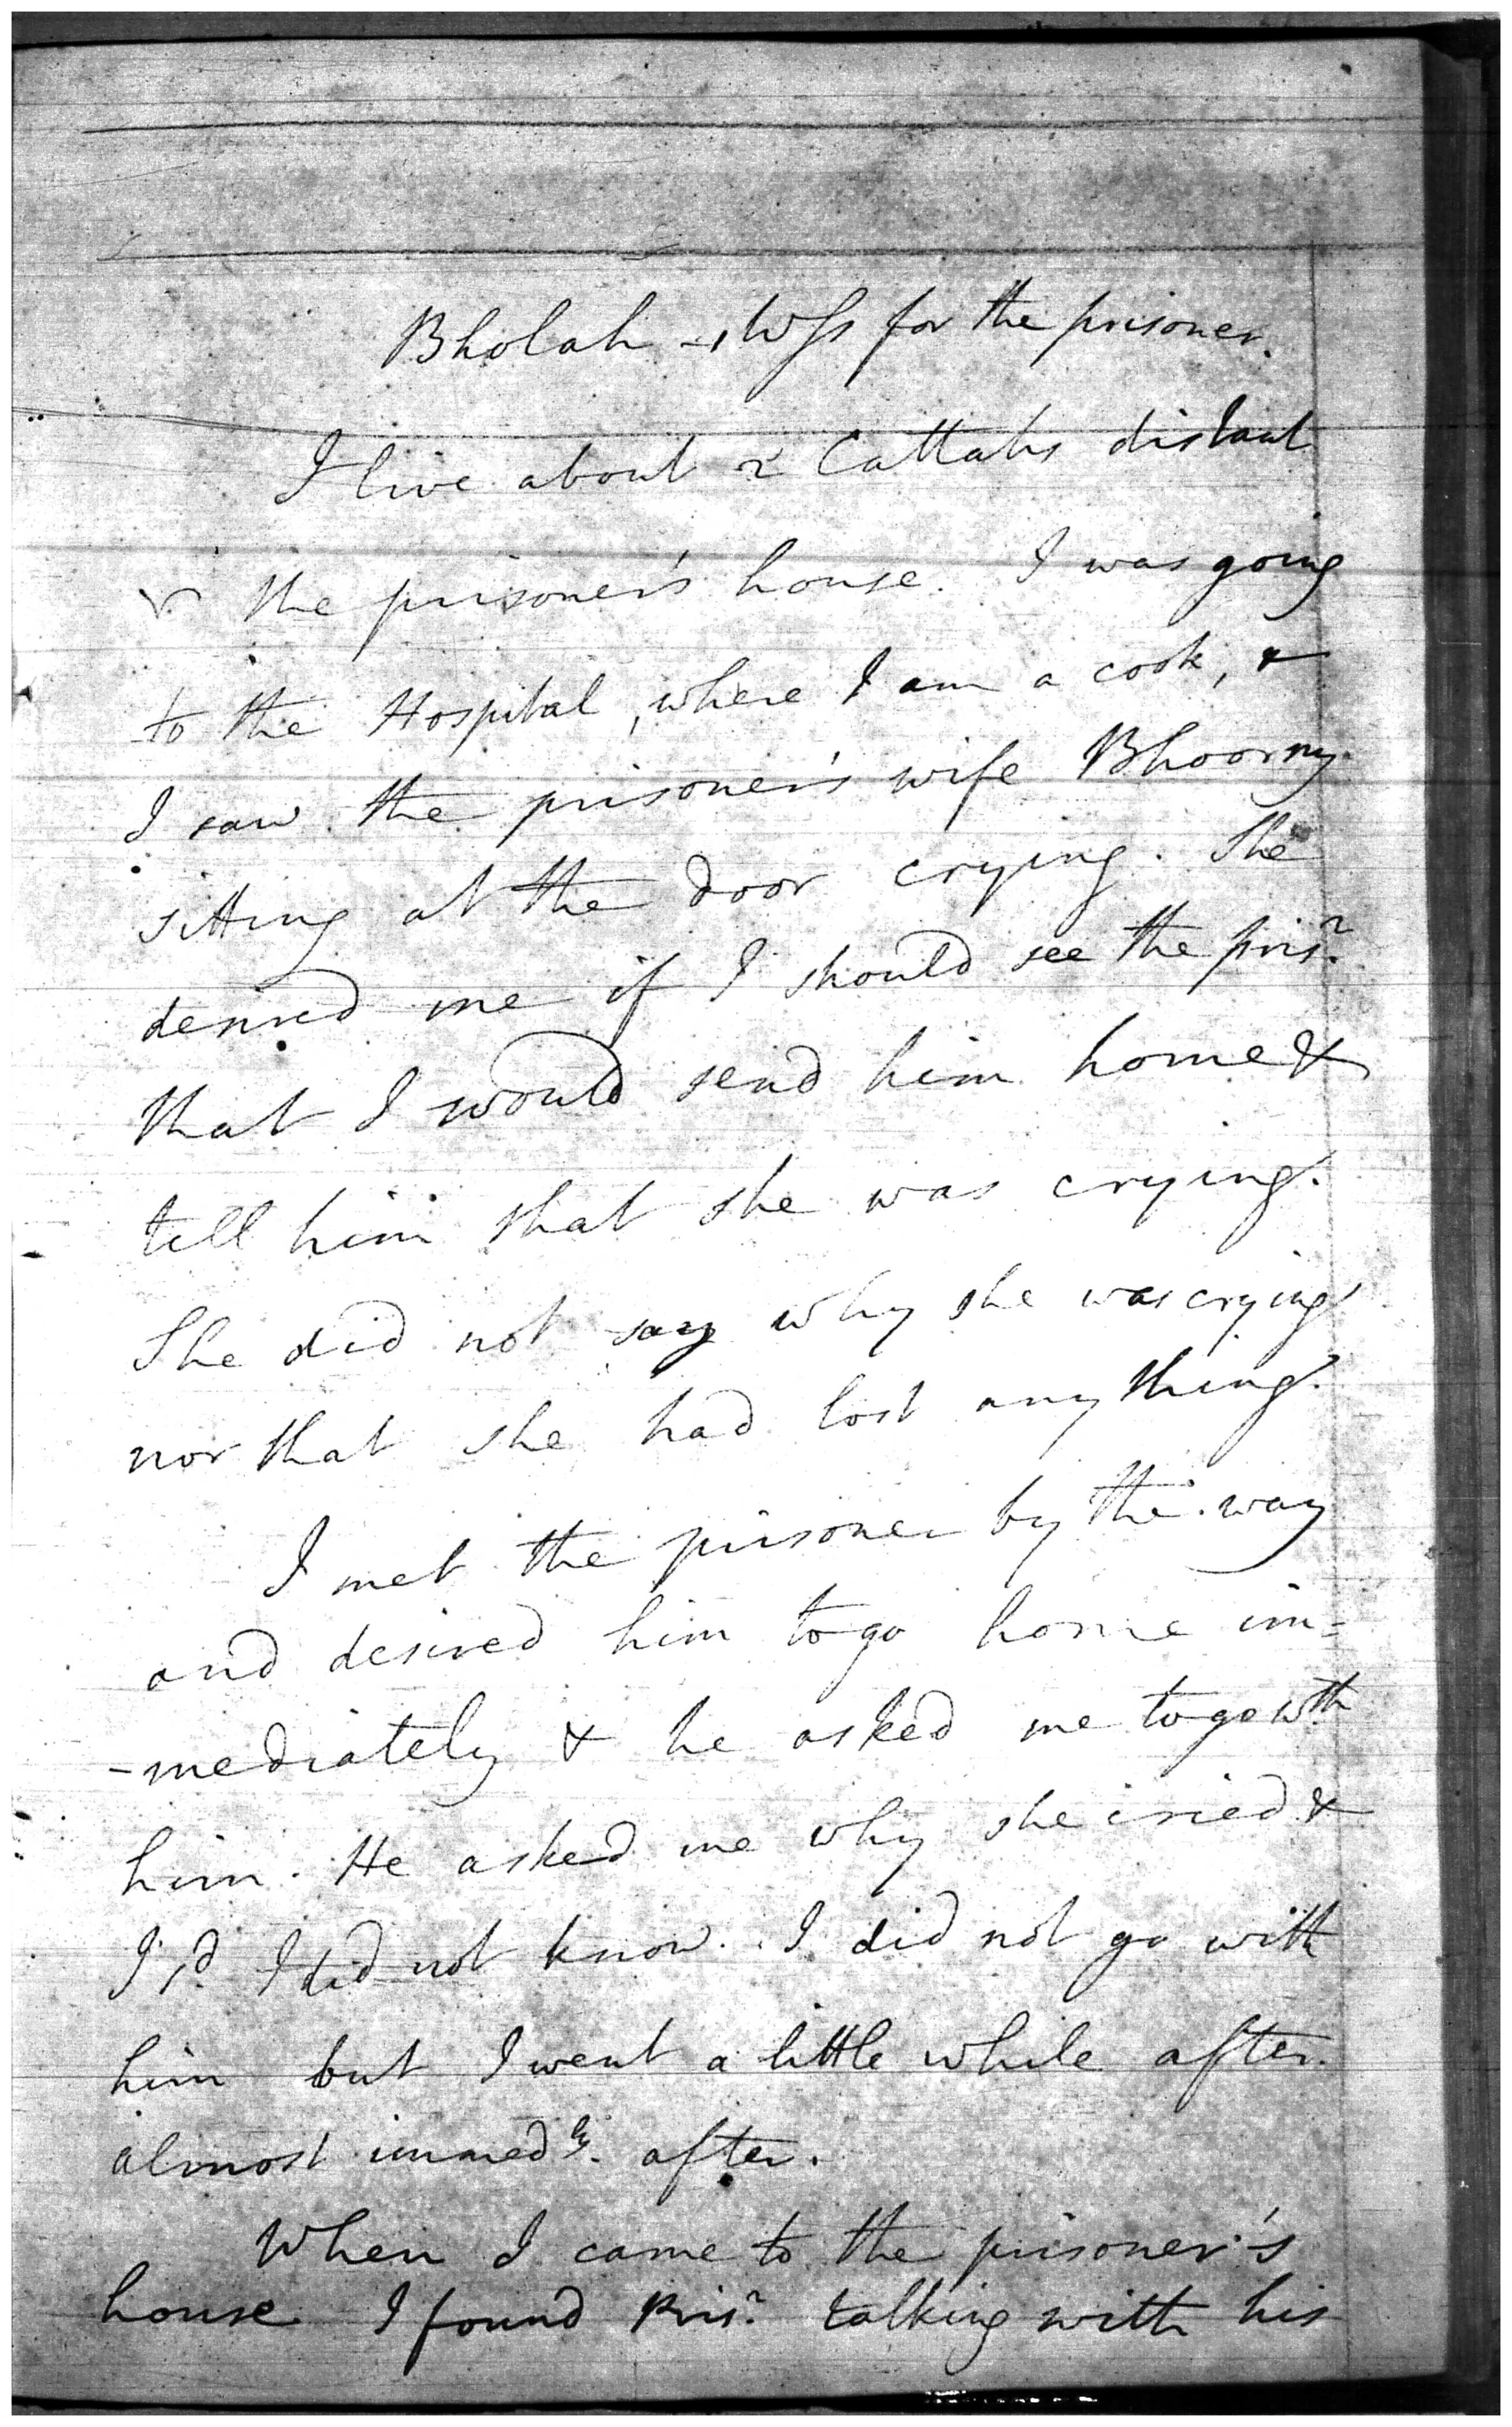 Bholah – Wss for the prisoner.
I live about 2 Cattahs distant
the prisoner's house. I was going
to the Hospital, where I am a cook, &
I saw the prisoner's wife Bhoorny
sitting at the door crying. She
desired me if I should see the prisr
that I would send him home &
tell him that she was crying.
She did not say why she was crying
nor that she had lost any thing.
I met the prisoner by the way
and desired him to go home im=
-mediately & he asked me to go wth
him. He asked me why she cried &
I sd I did not know. I did not go with
him but I went a little while after.
almost immedly. after.
When I came to the prisoner's
house I found Prisr talking with his